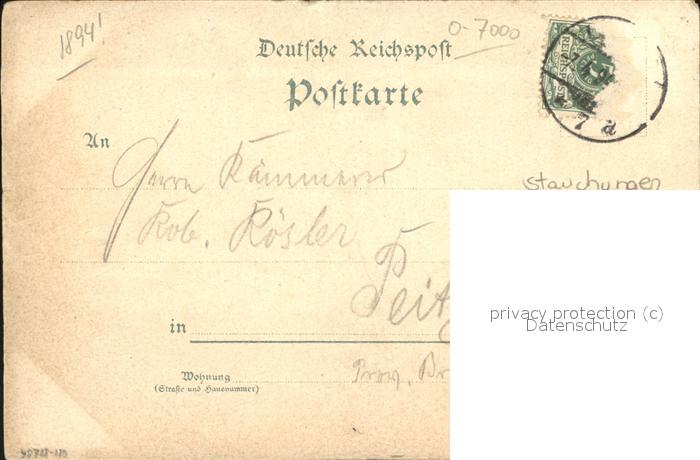 1894!
0-7000
Deutsche Reichspost
Postkarte
REICHSPOST
7 a
An
Herrn Kämmerer
Rob. Rösler
stauchungen
Peitz
privacy protection (c)
Datenschutz
in
Wohnung
(Straße und Hausnummer)
Prov. Br